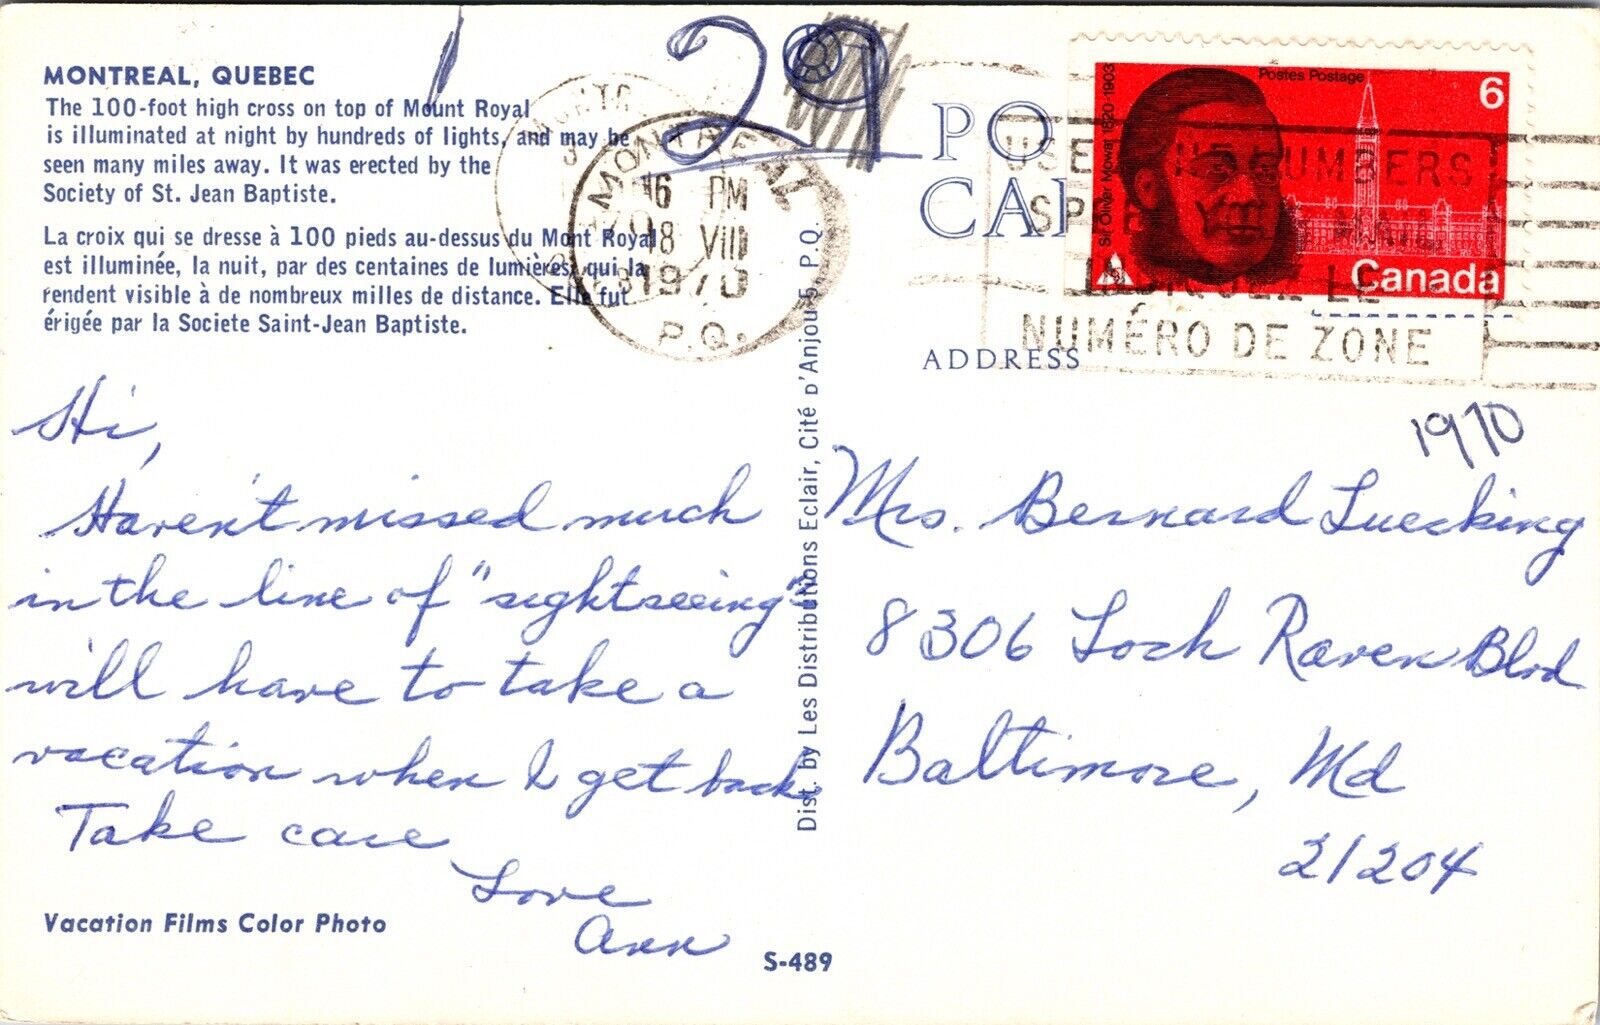 MONTREAL, QUEBEC
The 100-foot high cross on top of Mount Royal
is illuminated at night by hundreds of lights, and may be
seen many miles away. It was erected by the
Society of St. Jean Baptiste.
La croix qui se dresse à 100 pieds au-dessus du Mont Royal
est illuminée, la nuit, par des centaines de lumières, qui la
rendent visible à de nombreux milles de distance. Elle fut
érigée par la Societe Saint-Jean Baptiste.
29
MONTREAL
16 PM
18 VIII
1970
P.Q.
Hi,
Haven't missed much
in the line of "sightseeing"
will have to take a
vacation when I get back
Take care
Love
Ann
Vacation Films Color Photo
S-489
Dist. by Les Distributions Eclair, Cité D'Anjou 5, P.Q.
PO
CA
USE NUMBERS
MAIL
LE
NUMÉRO DE ZONE
Postes Postage
6
Sir Oliver Mowat 1820-1903
Canada
ADDRESS
1970
Mrs. Bernard Luecking
8306 Loch Raven Blvd
Baltimore, Md
21204